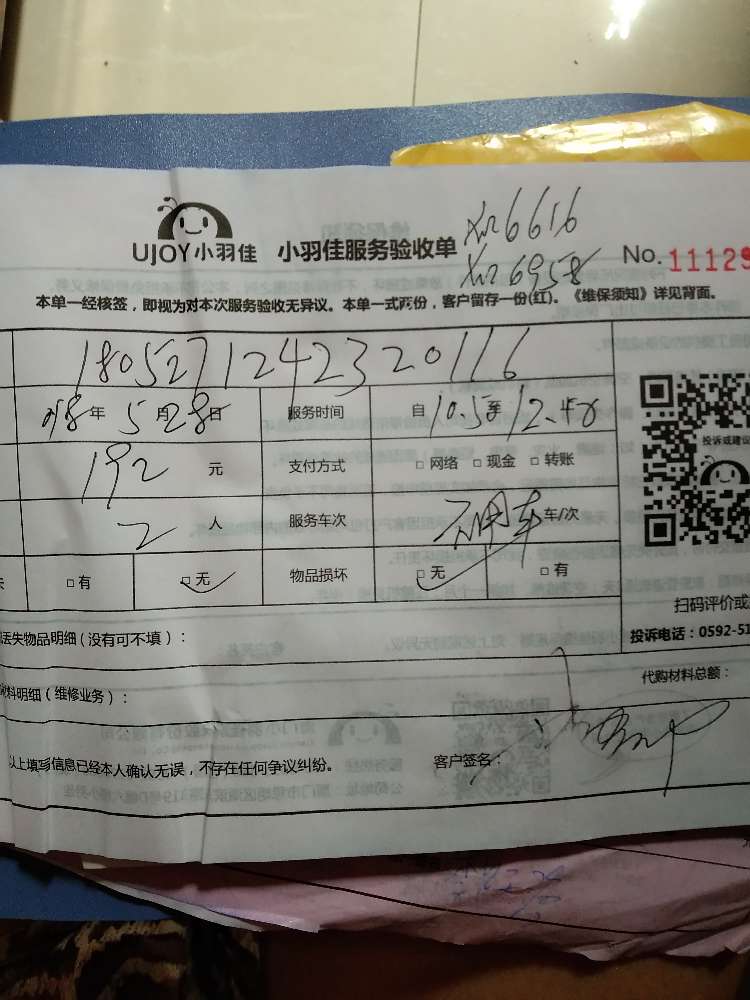 UJOY小羽佳 小羽佳服务验收单
xn6616
xn6958
No. 11129
本单一经核签，即视为对本次服务验收无异议。本单一式两份，客户留存一份(红)。《维保须知》详见背面。
1805271242320116
18年5月28日 服务时间 自10.5至12.40
192元 支付方式 □网络 □现金 □转账
2人 服务车次 无用车 车/次
□有 □无 物品损坏 □无 □有
投诉或建议
扫码评价或
投诉电话：0592-51
丢失物品明细(没有可不填)：
材料明细(维修业务)：
代购材料总额：
以上填写信息已经本人确认无误，不存在任何争议纠纷。
客户签名：